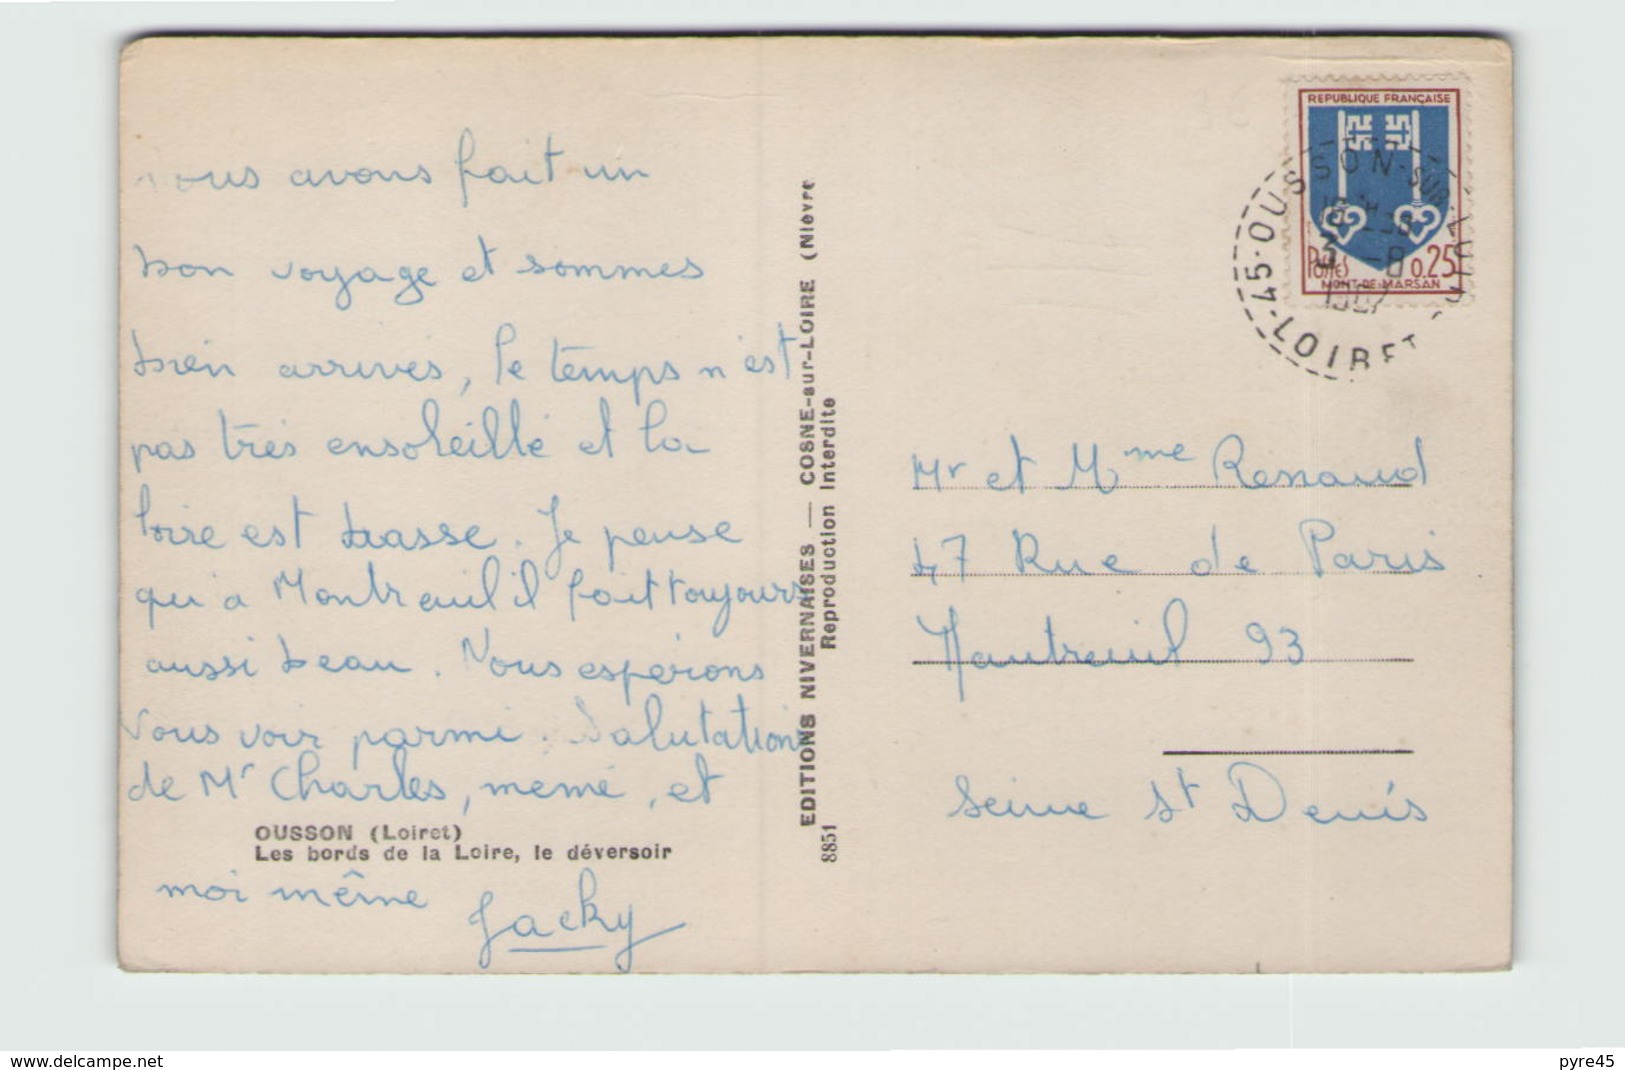 nous avons fait un
bon voyage et sommes
bien arrives, le temps n'est
pas très ensoleillé et la
loire est basse. Je pense
qu'a Montreuil il fait toujours
aussi beau. Nous espérons
vous voir parmi. Salutations
de Mr Charles, mémé, et
OUSSON (Loiret)
Les bords de la Loire, le déversoir
moi même Jacky
EDITIONS NIVERNAISES — COSNE-sur-LOIRE (Nièvre
8851 Reproduction Interdite
REPUBLIQUE FRANÇAISE
POSTES 0,25
MONT-DE-MARSAN
OUSSON-SUR-LOIRE
3 -8
1967
45 LOIRET
Mr et Mme Renaud
47 Rue de Paris
Montreuil 93
Seine St Denis
www.delcampe.net
pyre45